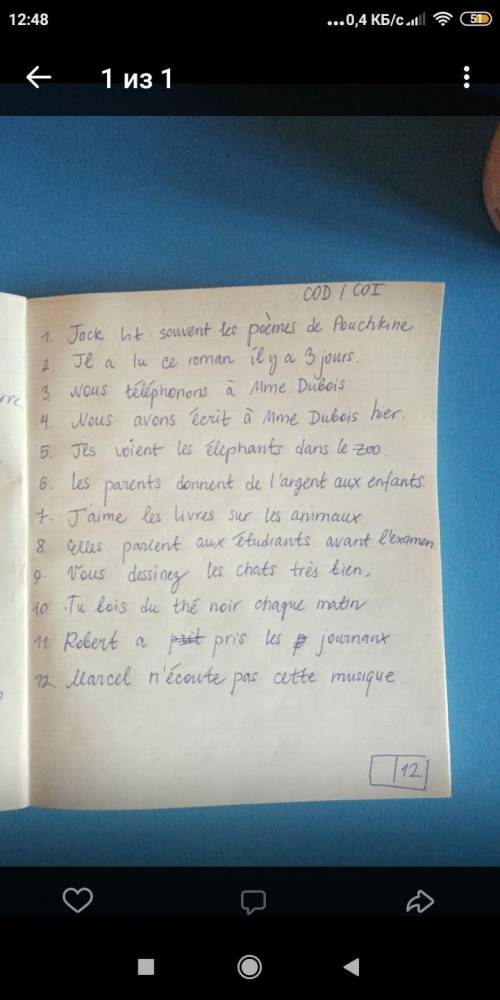 12:48 ...0,4 КБ/с 51
1 из 1
COD / COI
1. Jack lit souvent les poèmes de Pouchkine
2. Il a lu ce roman il y a 3 jours.
3. Nous téléphonons à Mme Dubois
4. Nous avons écrit à Mme Dubois hier.
5. Ils voient les éléphants dans le zoo.
6. Les parents donnent de l'argent aux enfants.
7. J'aime les livres sur les animaux.
8. Elles parlent aux étudiants avant l'examen
9. Vous dessinez les chats très bien.
10. Tu bois du thé noir chaque matin
11. Robert a pris les journaux
12. Marcel n'écoute pas cette musique.
12